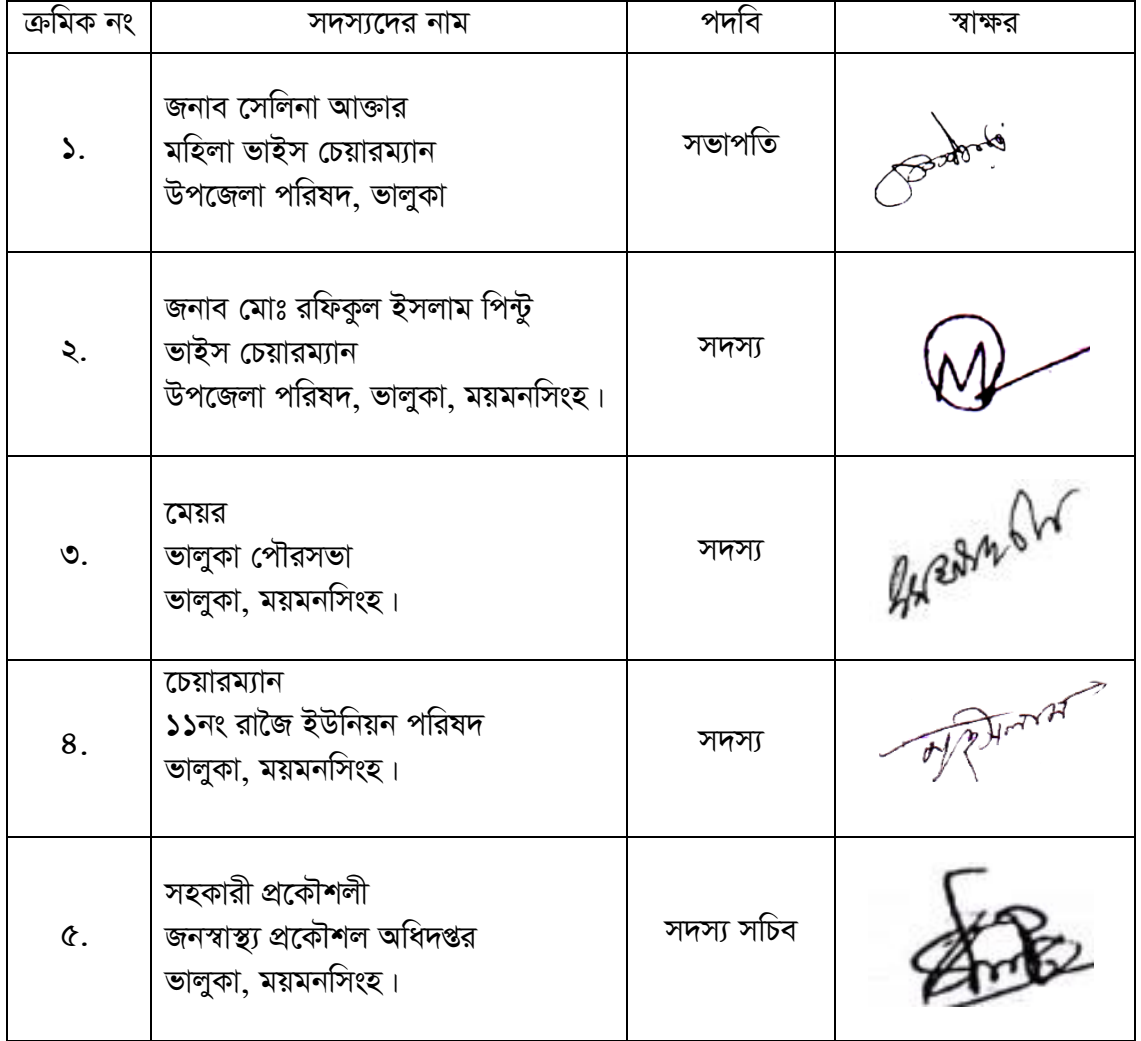 ক্রমিক নং সদস্যদের নাম পদবি স্বাক্ষর
১. জনাব সেলিনা আক্তার
মহিলা ভাইস চেয়ারম্যান
উপজেলা পরিষদ, ভালুকা
সভাপতি
২. জনাব মোঃ রফিকুল ইসলাম পিন্টু
ভাইস চেয়ারম্যান
উপজেলা পরিষদ, ভালুকা, ময়মনসিংহ।
সদস্য
৩. মেয়র
ভালুকা পৌরসভা
ভালুকা, ময়মনসিংহ।
সদস্য
৪. চেয়ারম্যান
১১নং রাজৈ ইউনিয়ন পরিষদ
ভালুকা, ময়মনসিংহ।
সদস্য
৫. সহকারী প্রকৌশলী
জনস্বাস্থ্য প্রকৌশল অধিদপ্তর
ভালুকা, ময়মনসিংহ।
সদস্য সচিব